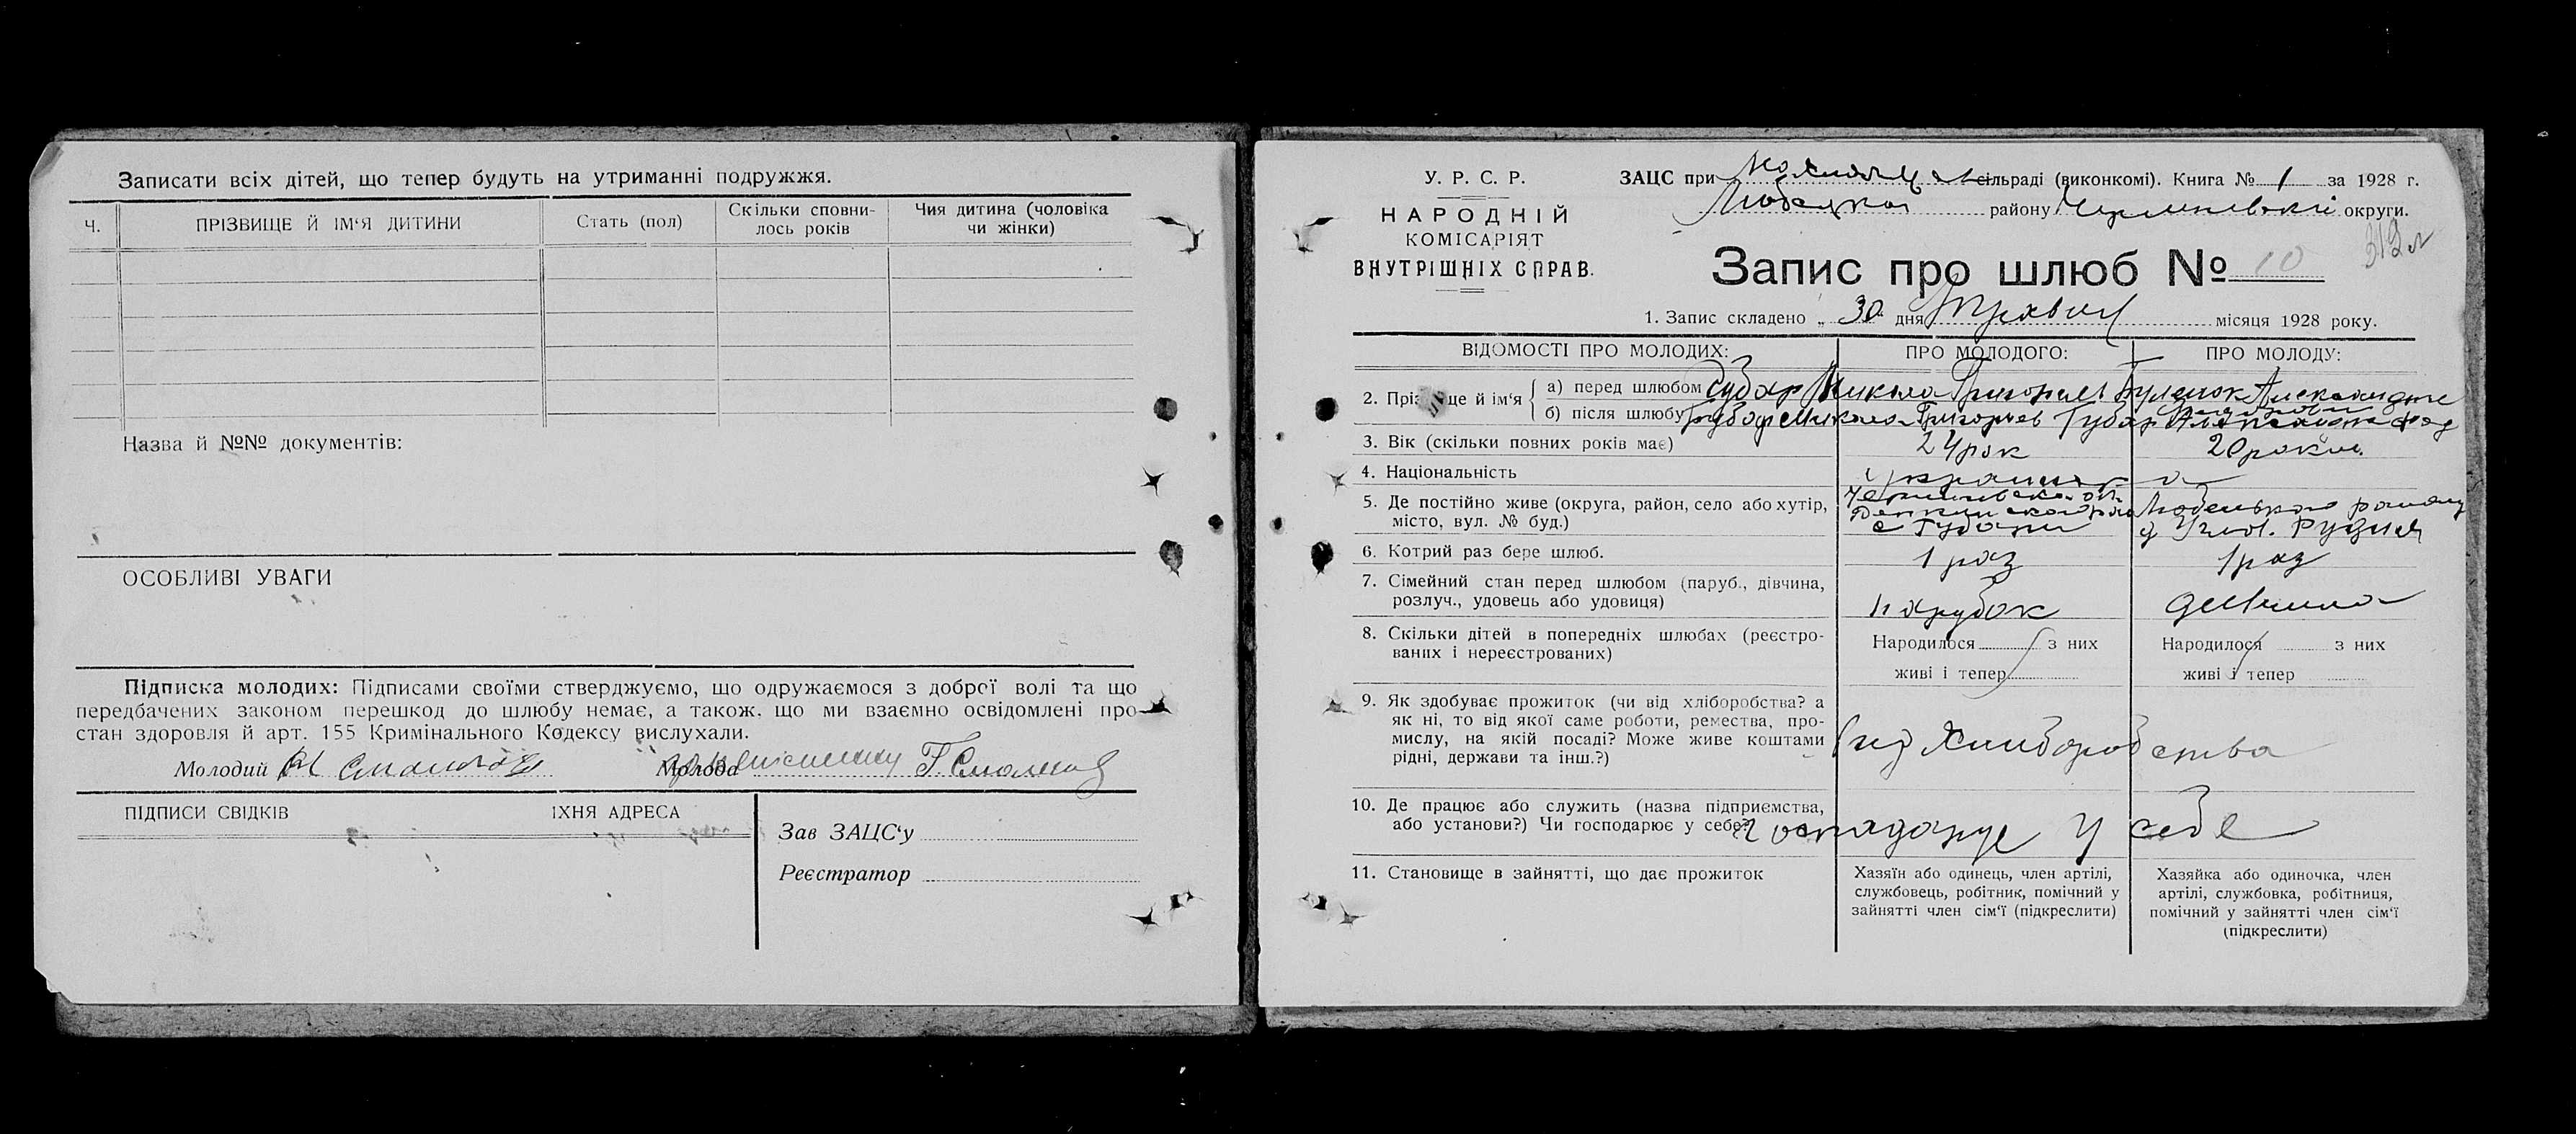 Записати всіх дітей, що тепер будуть на утриманні подружжя.
Ч.
ПРІЗВИЩЕ Й ІМ'Я ДИТИНИ
Стать (пол)
Скільки сповни-
лось років
Чия дитина (чоловіка
чи жінки)
Назва й №№ документів:
ОСОБЛИВІ УВАГИ
Підписка молодих: Підписами своїми стверджуємо, що одружаємося з доброї волі та що
передбачених законом перешкод до шлюбу немає, а також, що ми взаємно освідомлені про
стан здоровля й арт. 155 Кримінального Кодексу вислухали.
Молодий
Молода
ПІДПИСИ СВІДКІВ
ЇХНЯ АДРЕСА
Зав ЗАЦС'у
Реєстратор
У. Р. С. Р.
НАРОДНІЙ
КОМІСАРІЯТ
ВНУТРІШНІХ СПРАВ.
ЗАЦС при сільраді (виконкомі). Книга № 1 за 1928 г.
району округи.
Запис про шлюб № 10
1. Запис складено „ 30 дня місяця 1928 року.
ВІДОМОСТІ ПРО МОЛОДИХ:
ПРО МОЛОДОГО:
ПРО МОЛОДУ:
2. Прізвище й ім'я
а) перед шлюбом Губар Микола
б) після шлюбу Губар Микола Губар
3. Вік (скільки повних років має)
24 рок
20 рокив
4. Національність
5. Де постійно живе (округа, район, село або хутір,
місто, вул. № буд.)
с Губачи
Рудня
6. Котрий раз бере шлюб.
1 раз
1 раз
7. Сімейний стан перед шлюбом (паруб., дівчина,
розлуч., удовець або удовиця)
парубок
девчина
8. Скільки дітей в попередніх шлюбах (реєстро-
ваних і нереєстрованих)
Народилося з них
живі і тепер
Народилося з них
живі і тепер
9. Як здобуває прожиток (чи від хліборобства? а
як ні, то від якої саме роботи, ремества, про-
мислу, на якій посаді? Може живе коштами
рідні, держави та інш.?)
від Хлиборобства
10. Де працює або служить (назва підприємства,
або установи?) Чи господарює у себе?
господарує у себе
11. Становище в зайнятті, що дає прожиток
Хазяїн або одинець, член артілі,
службовець, робітник, помічний у
зайнятті член сім'ї (підкреслити)
Хазяйка або одиночка, член
артілі, службовка, робітниця,
помічний у зайнятті член сім'ї
(підкреслити)